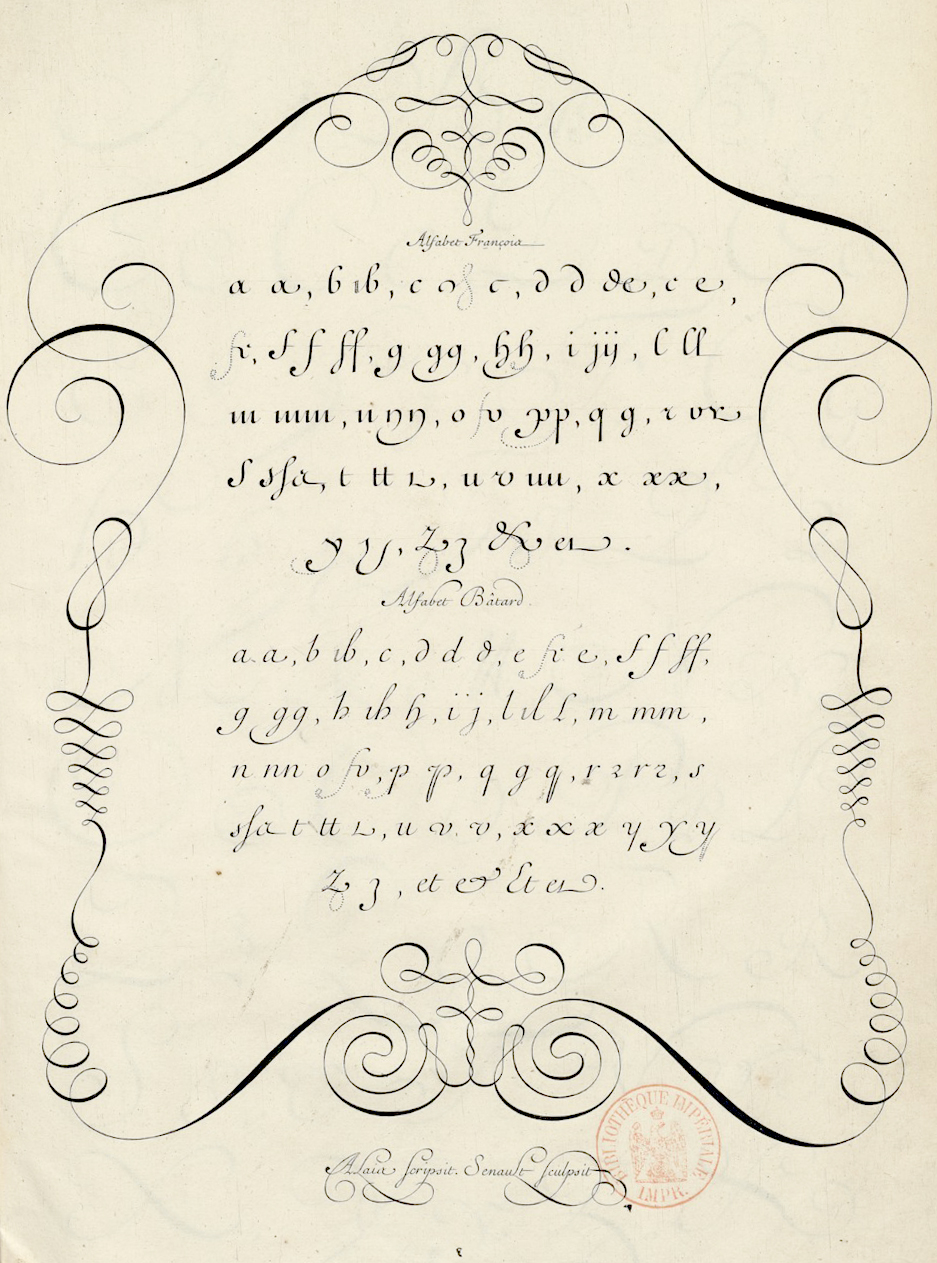 Alfabet François
a a, b b, c c c, d d de, e e,
fe, f f ff, g gg, hh, i jij, l ll
m mm, n nn, o fo pp, q q, r vr
s ssa, t tt t, u v uu, x xx,
y y, z z & et.
Alfabet Bâtard.
a a, b b, c, d d d, e fe e, f f ff,
g gg, h h h, i j, l l l, m mm,
n nn o fo, p p, q q q, r 2 r 2, s
ssa t tt t, u v v, x x x y y y
z z, et & Et et.
Alais scripsit. Senault sculpsit
BIBLIOTHEQUE IMPÉRIALE
IMPR.